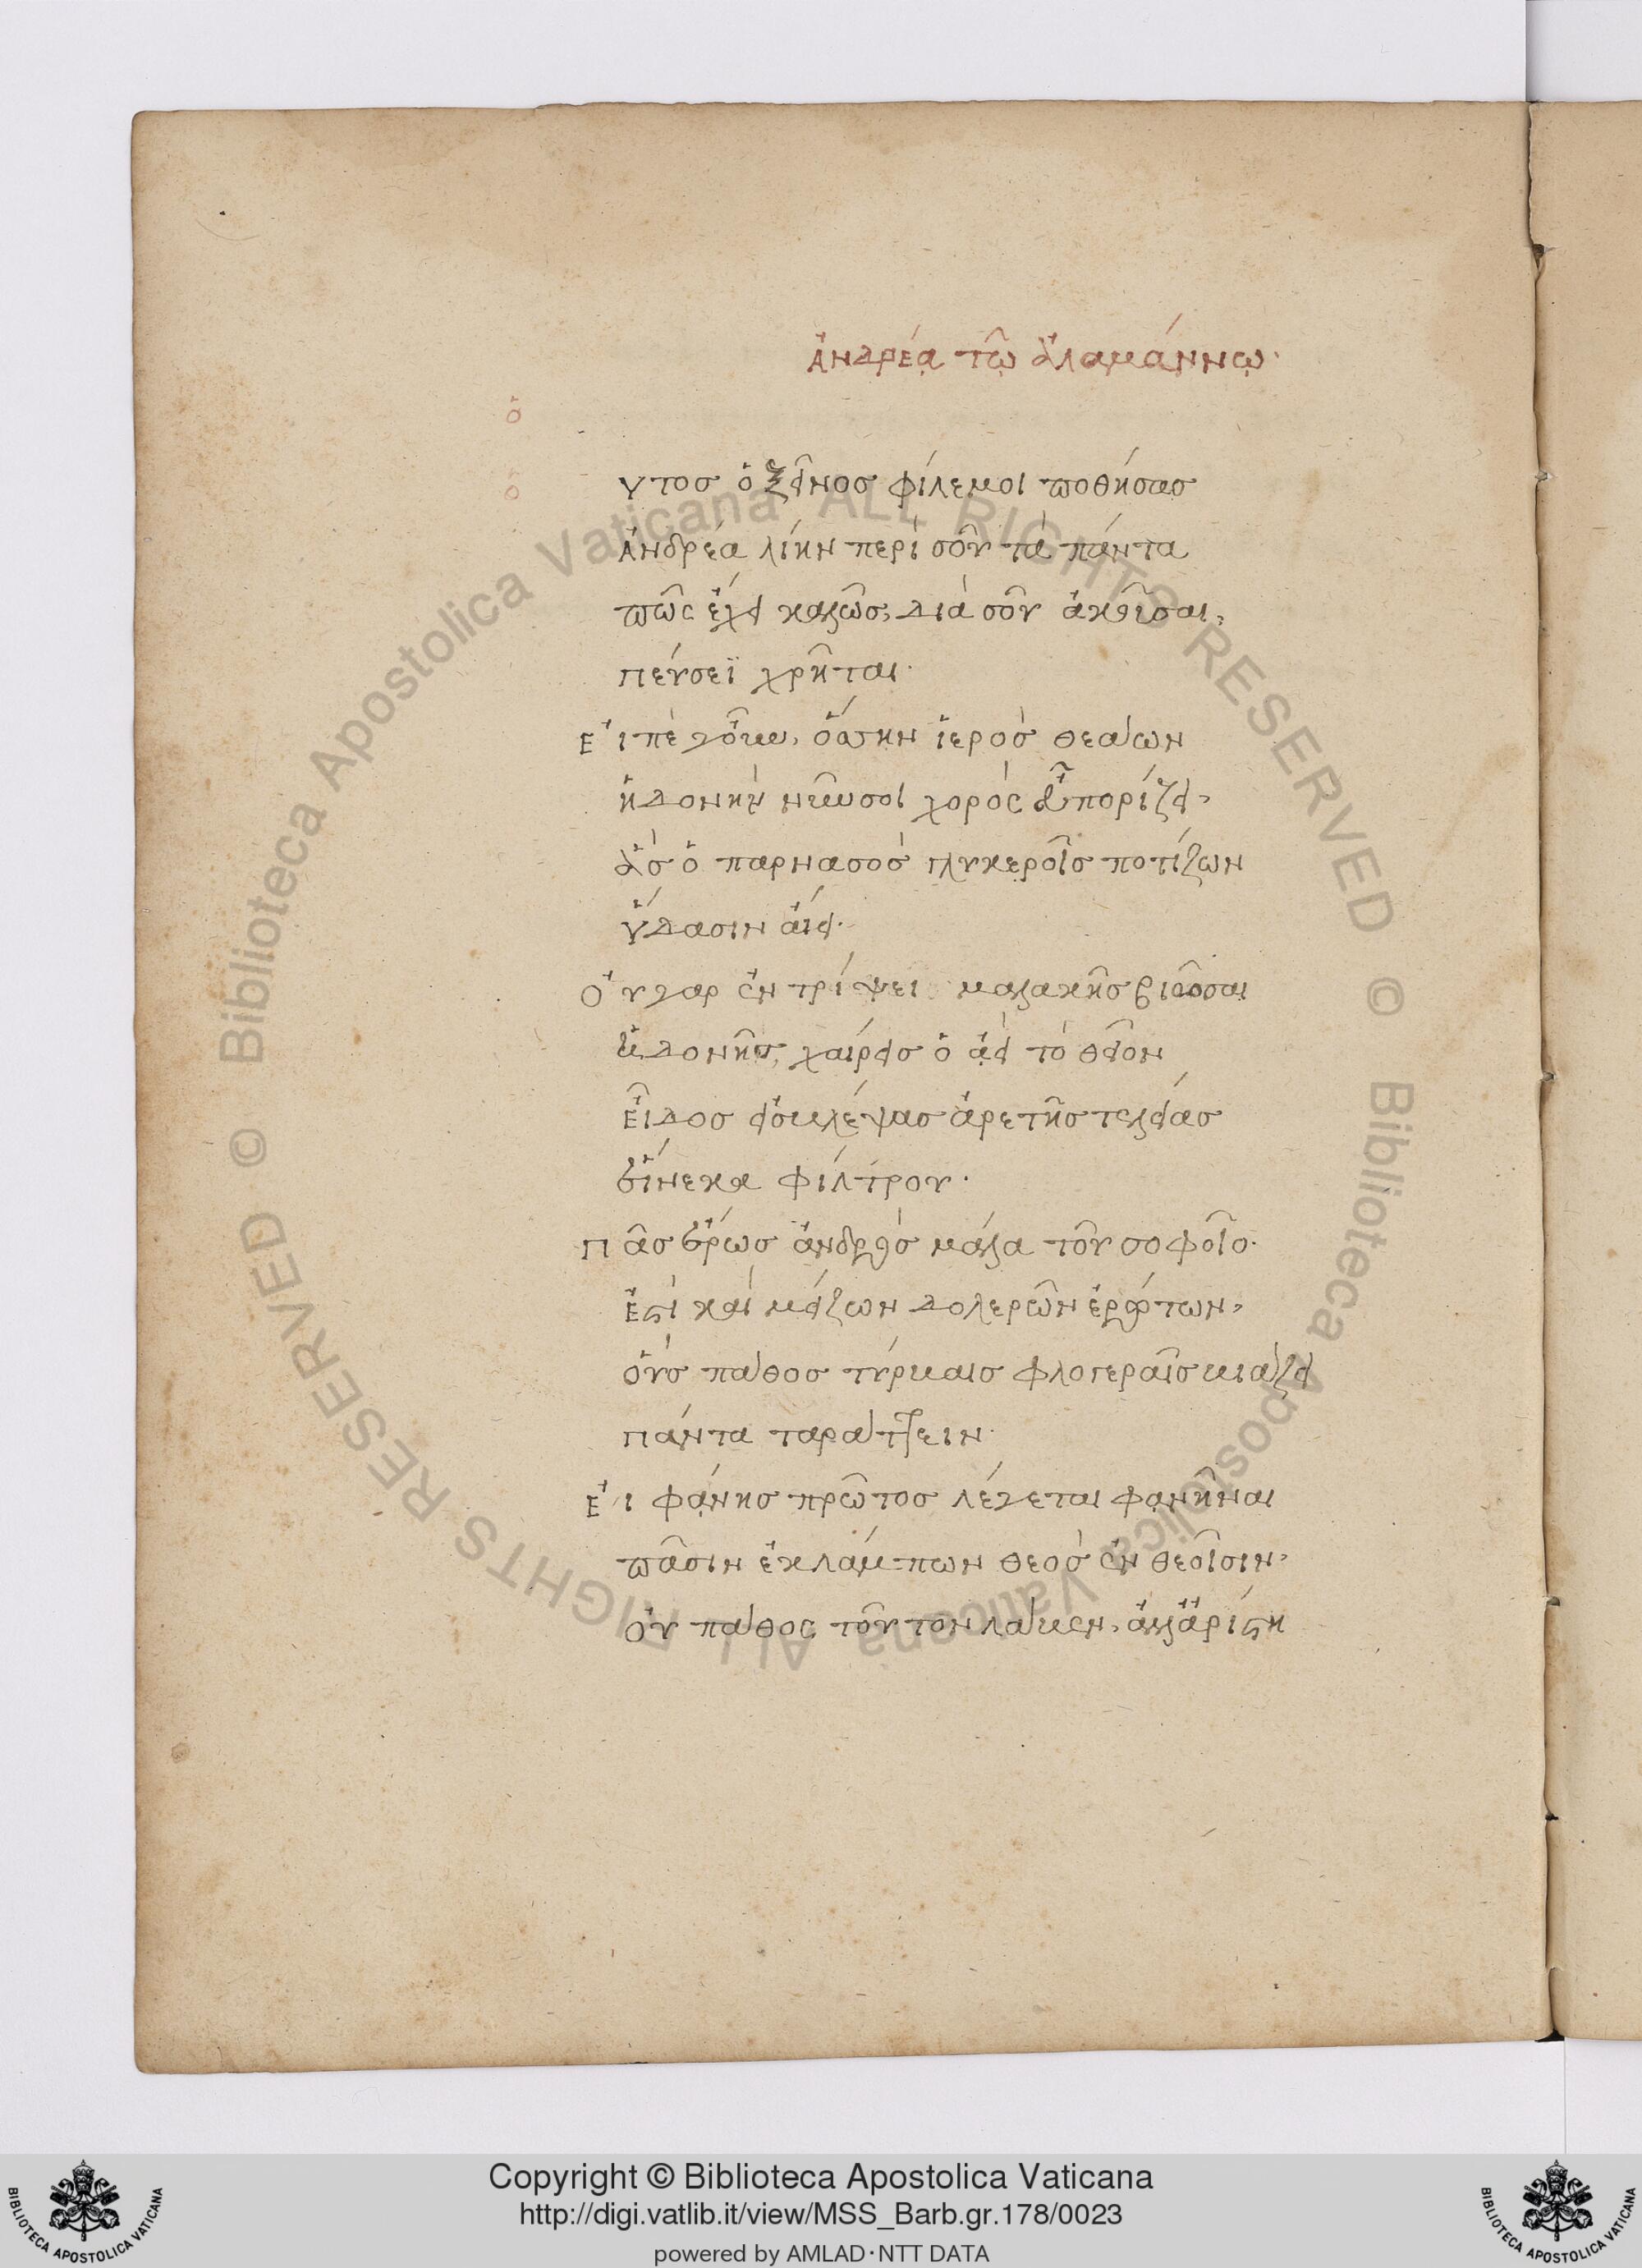 ἀνδρέᾳ τῷ ἀλαμάννῳ·
ὁ
ο
υτοσ ὁ ξεῖνοσ φίλε μοι ποθήσασ
ἀνδρέα λίην περὶ σοῦ τὰ πάντα
πῶς ἔχει καλῶσ, διὰ σοῦ ἀκοῦσαι,
πεύσεϊ χρῆται·
Ε ἰπὲ γοῦν, ὅστην ἱερὸσ θεάων
ἡδονὴν νῦν σοι χορὸς εὖ πορίζει,
εὖσ ὁ παρνασὸσ γλυκεροῖσ ποτίζων
ὕδασιν ἀίει·
Ο ὐ γαρ ἐν τρίψει μαλακῆσ βιῶσαι
ἡδονῆσ, χαίρεισ ὁ ἀεὶ τὸ θεῖον
εἶδοσ εἰσβλέψασ ἀρετῆσ τελείασ
εἵνεκα φίλτρου·
Π ᾶσ ἔρωσ ἀνδρὸσ μάλα τοῦ σοφοῖο·
ἐστὶ καὶ μείζων δολερῶν ἐρώτων,
οὓσ πάθοσ τύρβαισ φλογεραῖσ βιάζει
πάντα ταράττειν·
Ε ἰ φάνησ πρῶτοσ λέγεται φανῆναι
πᾶσιν ἐκλάμπων θεὸσ ἐν θεοῖσιν,
οὐ πάθος τοῦτον λάβεν, ἀλλ' ἀρίστη
Copyright © Biblioteca Apostolica Vaticana
http://digi.vatlib.it/view/MSS_Barb.gr.178/0023
powered by AMLAD·NTT DATA
BIBLIOTECA APOSTOLICA VATICANA
BIBLIOTECA APOSTOLICA VATICANA
© Biblioteca Apostolica Vaticana ALL RIGHTS RESERVED © Biblioteca Apostolica Vaticana ALL RIGHTS RESERVED